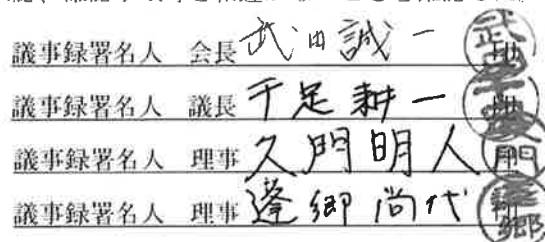 議事録署名人 会長 武田誠一
議事録署名人 議長 千足耕一
議事録署名人 理事 久門明人
議事録署名人 理事 蓬郷尚代